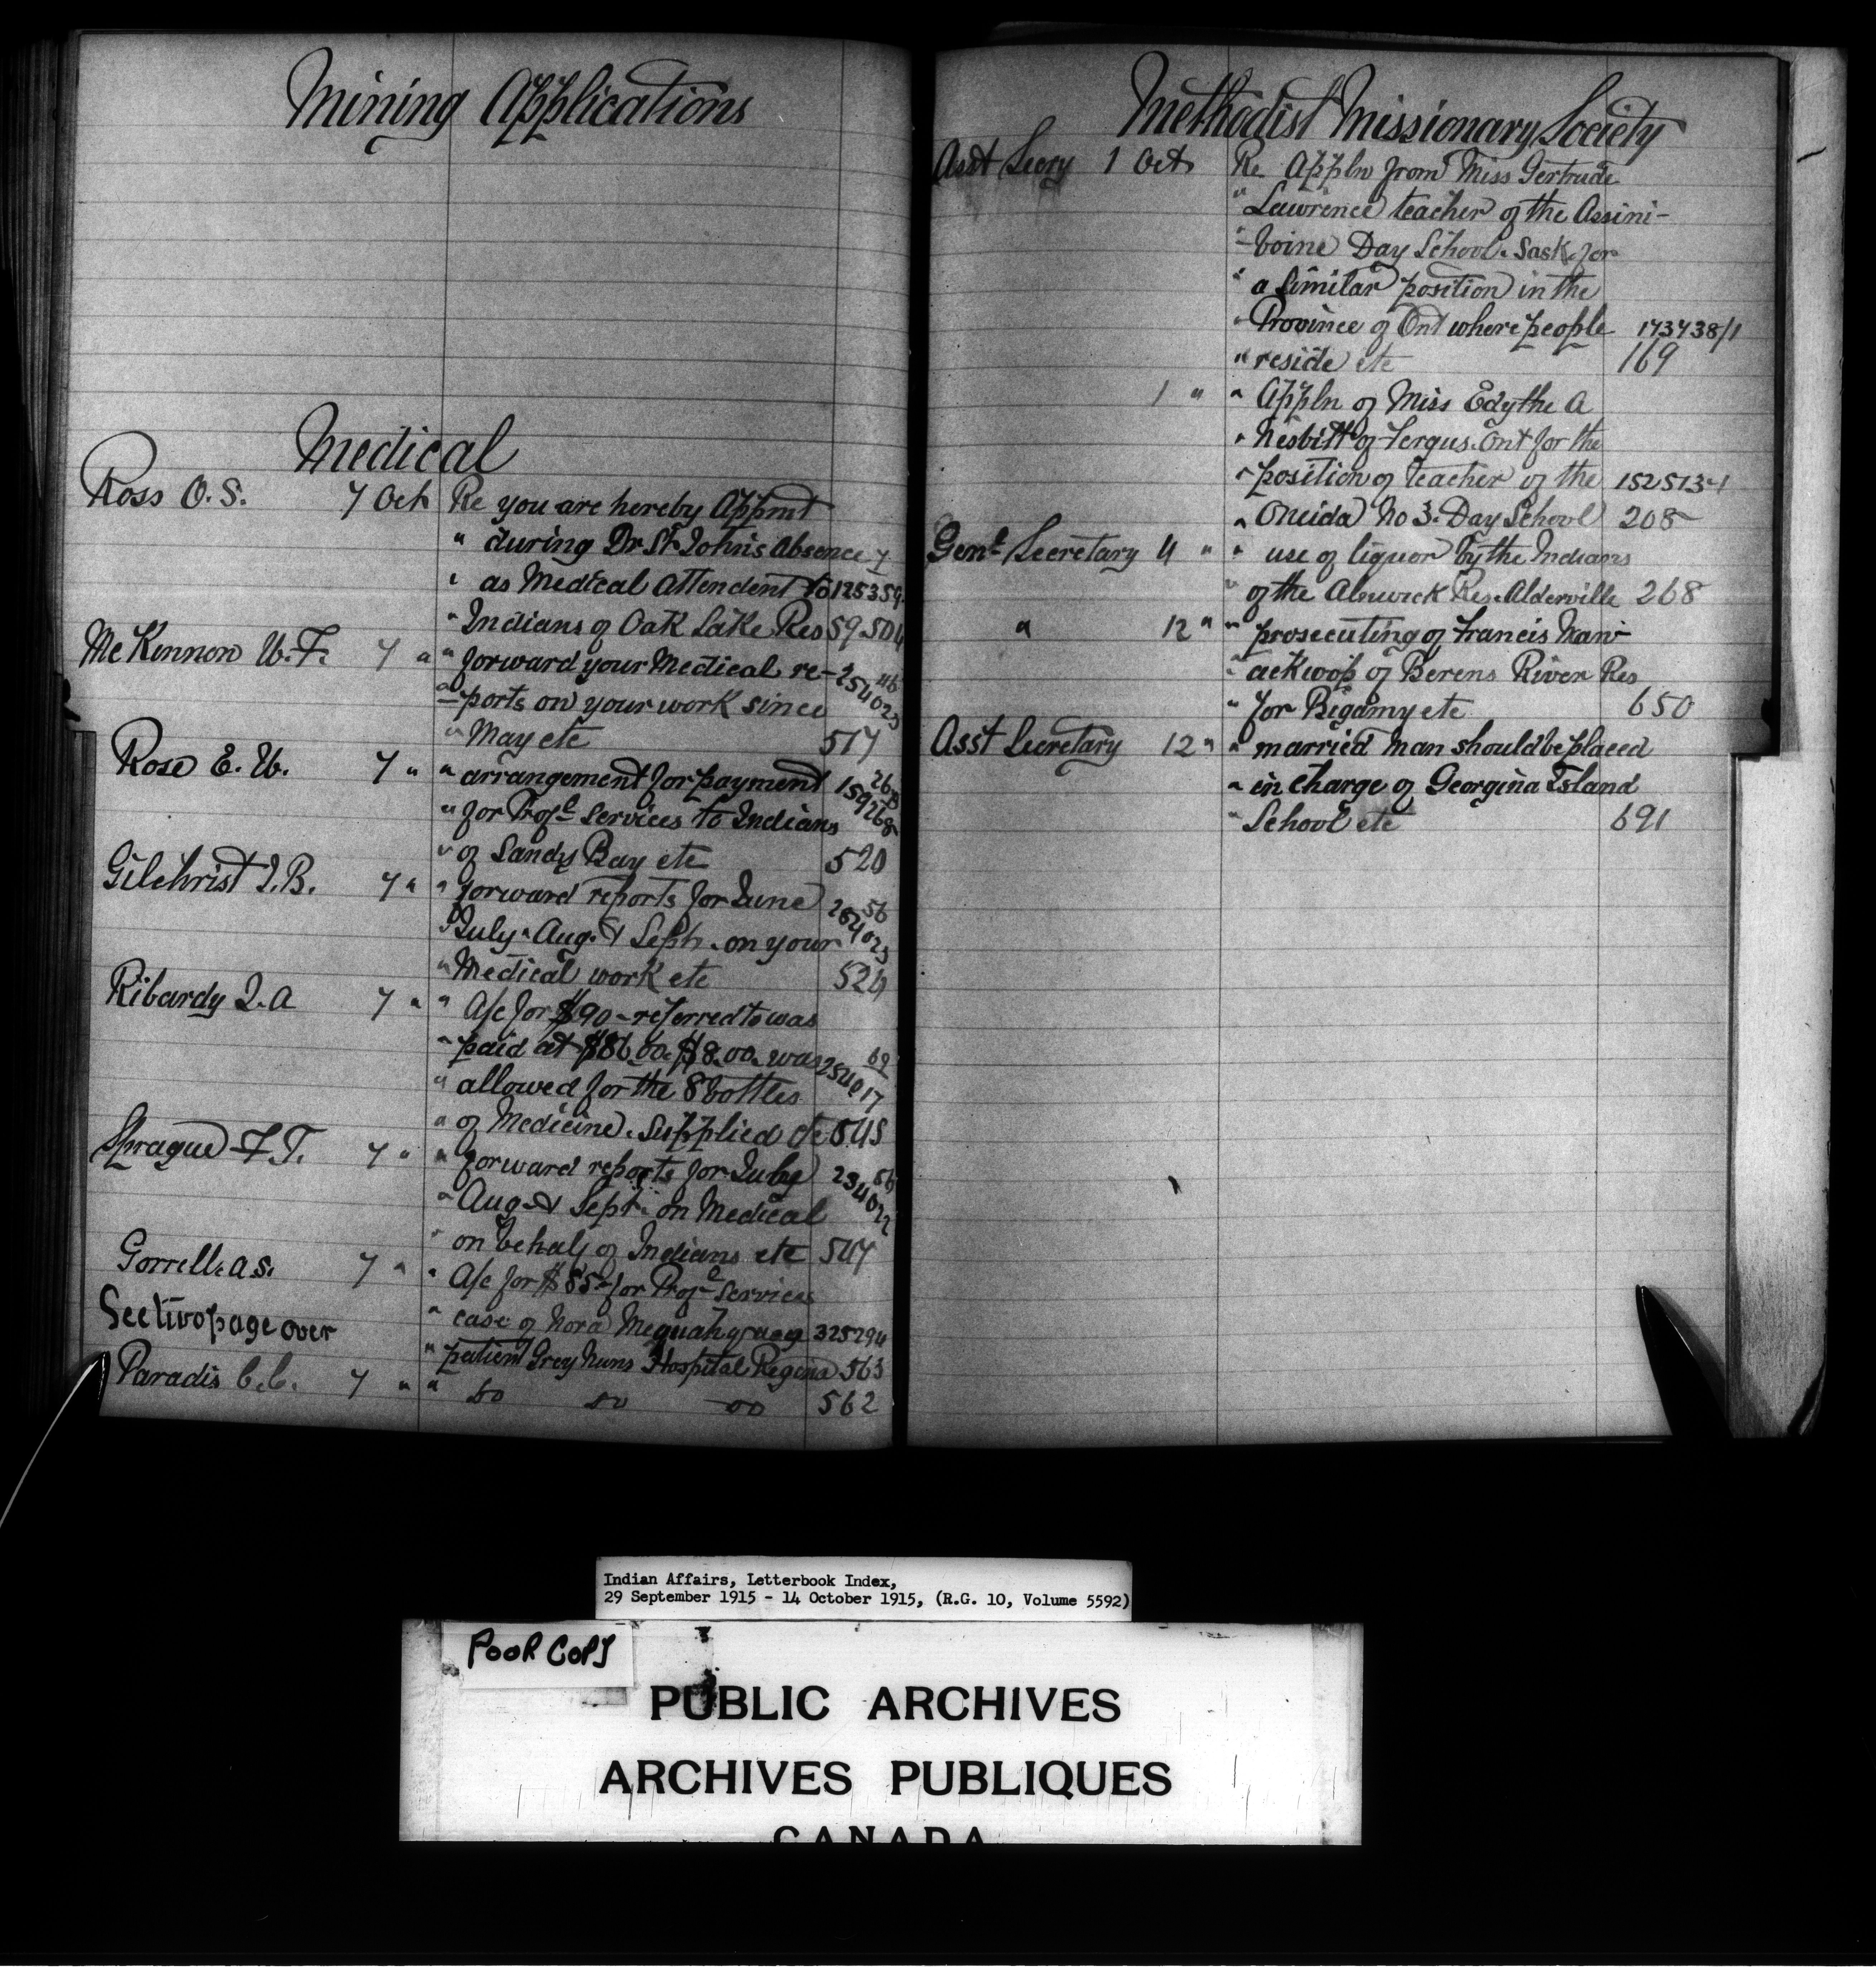 Mining Applications
Medical
Ross O. S. 7 Oct Re you are hereby Appmt
" during Dr St Johns Absence 7
" as Medical Attendent to 125359
" Indians of Oak Lake Res 59 504
McKinnon W. F. 7 " " forward your Medical re- 46
= ports on your work since 254023
" May etc 517
Rose E. W. 7 " " arrangement for payment 26
" for Profl Services to Indians 159268
" of Sandy Bay etc 520
Gilchrist J. B. 7 " " forward reports for June 56
" July. Aug. & Sept. on your 254023
" Medical work etc 524
Ribardy J. A 7 " " A/c for $90 - referred to was
" paid at $86.00. $8.00. was 69
" allowed for the 8 bottles 254017
" of Medicine. Supplied etc 545
Sprague F. T. 7 " " forward reports for July 56
" Aug & Sept. on Medical
" on behalf of Indians etc 547
Gorrell. A S. 7 " " A/c for $85 - for Profl Services
See two page over " case of Nora 325294
" patient Grey Nuns Hospital Regina 563
Paradis C. C. 7 " " do do do 562
Methodist Missionary Society
Asst Secy 1 Oct Re Appln from Miss Gertrude
" Lawrence teacher of the Assini-
" -boine Day School. Sask. for
" a similar position in the
" Province of Ont where people 173738/1
" reside etc 169
1 " " Appln of Miss Edythe A
" Nesbitt of Fergus. Ont for the
" position of teacher of the 152513-1
" Oneida No 3. Day School 208
Genl Secretary 4 " " use of liquor by the Indians
" of the Alnwick Res. Alderville 268
" 12 " " prosecuting of Francis Maw-
" ackwop of Berens River Res
" for Bigamy etc 650
Asst Secretary 12 " " married man should be placed
" in charge of Georgina Island
" School etc 691
Indian Affairs, Letterbook Index,
29 September 1915 - 14 October 1915, (R.G. 10, Volume 5592)
POOR COPY
PUBLIC ARCHIVES
ARCHIVES PUBLIQUES
CANADA